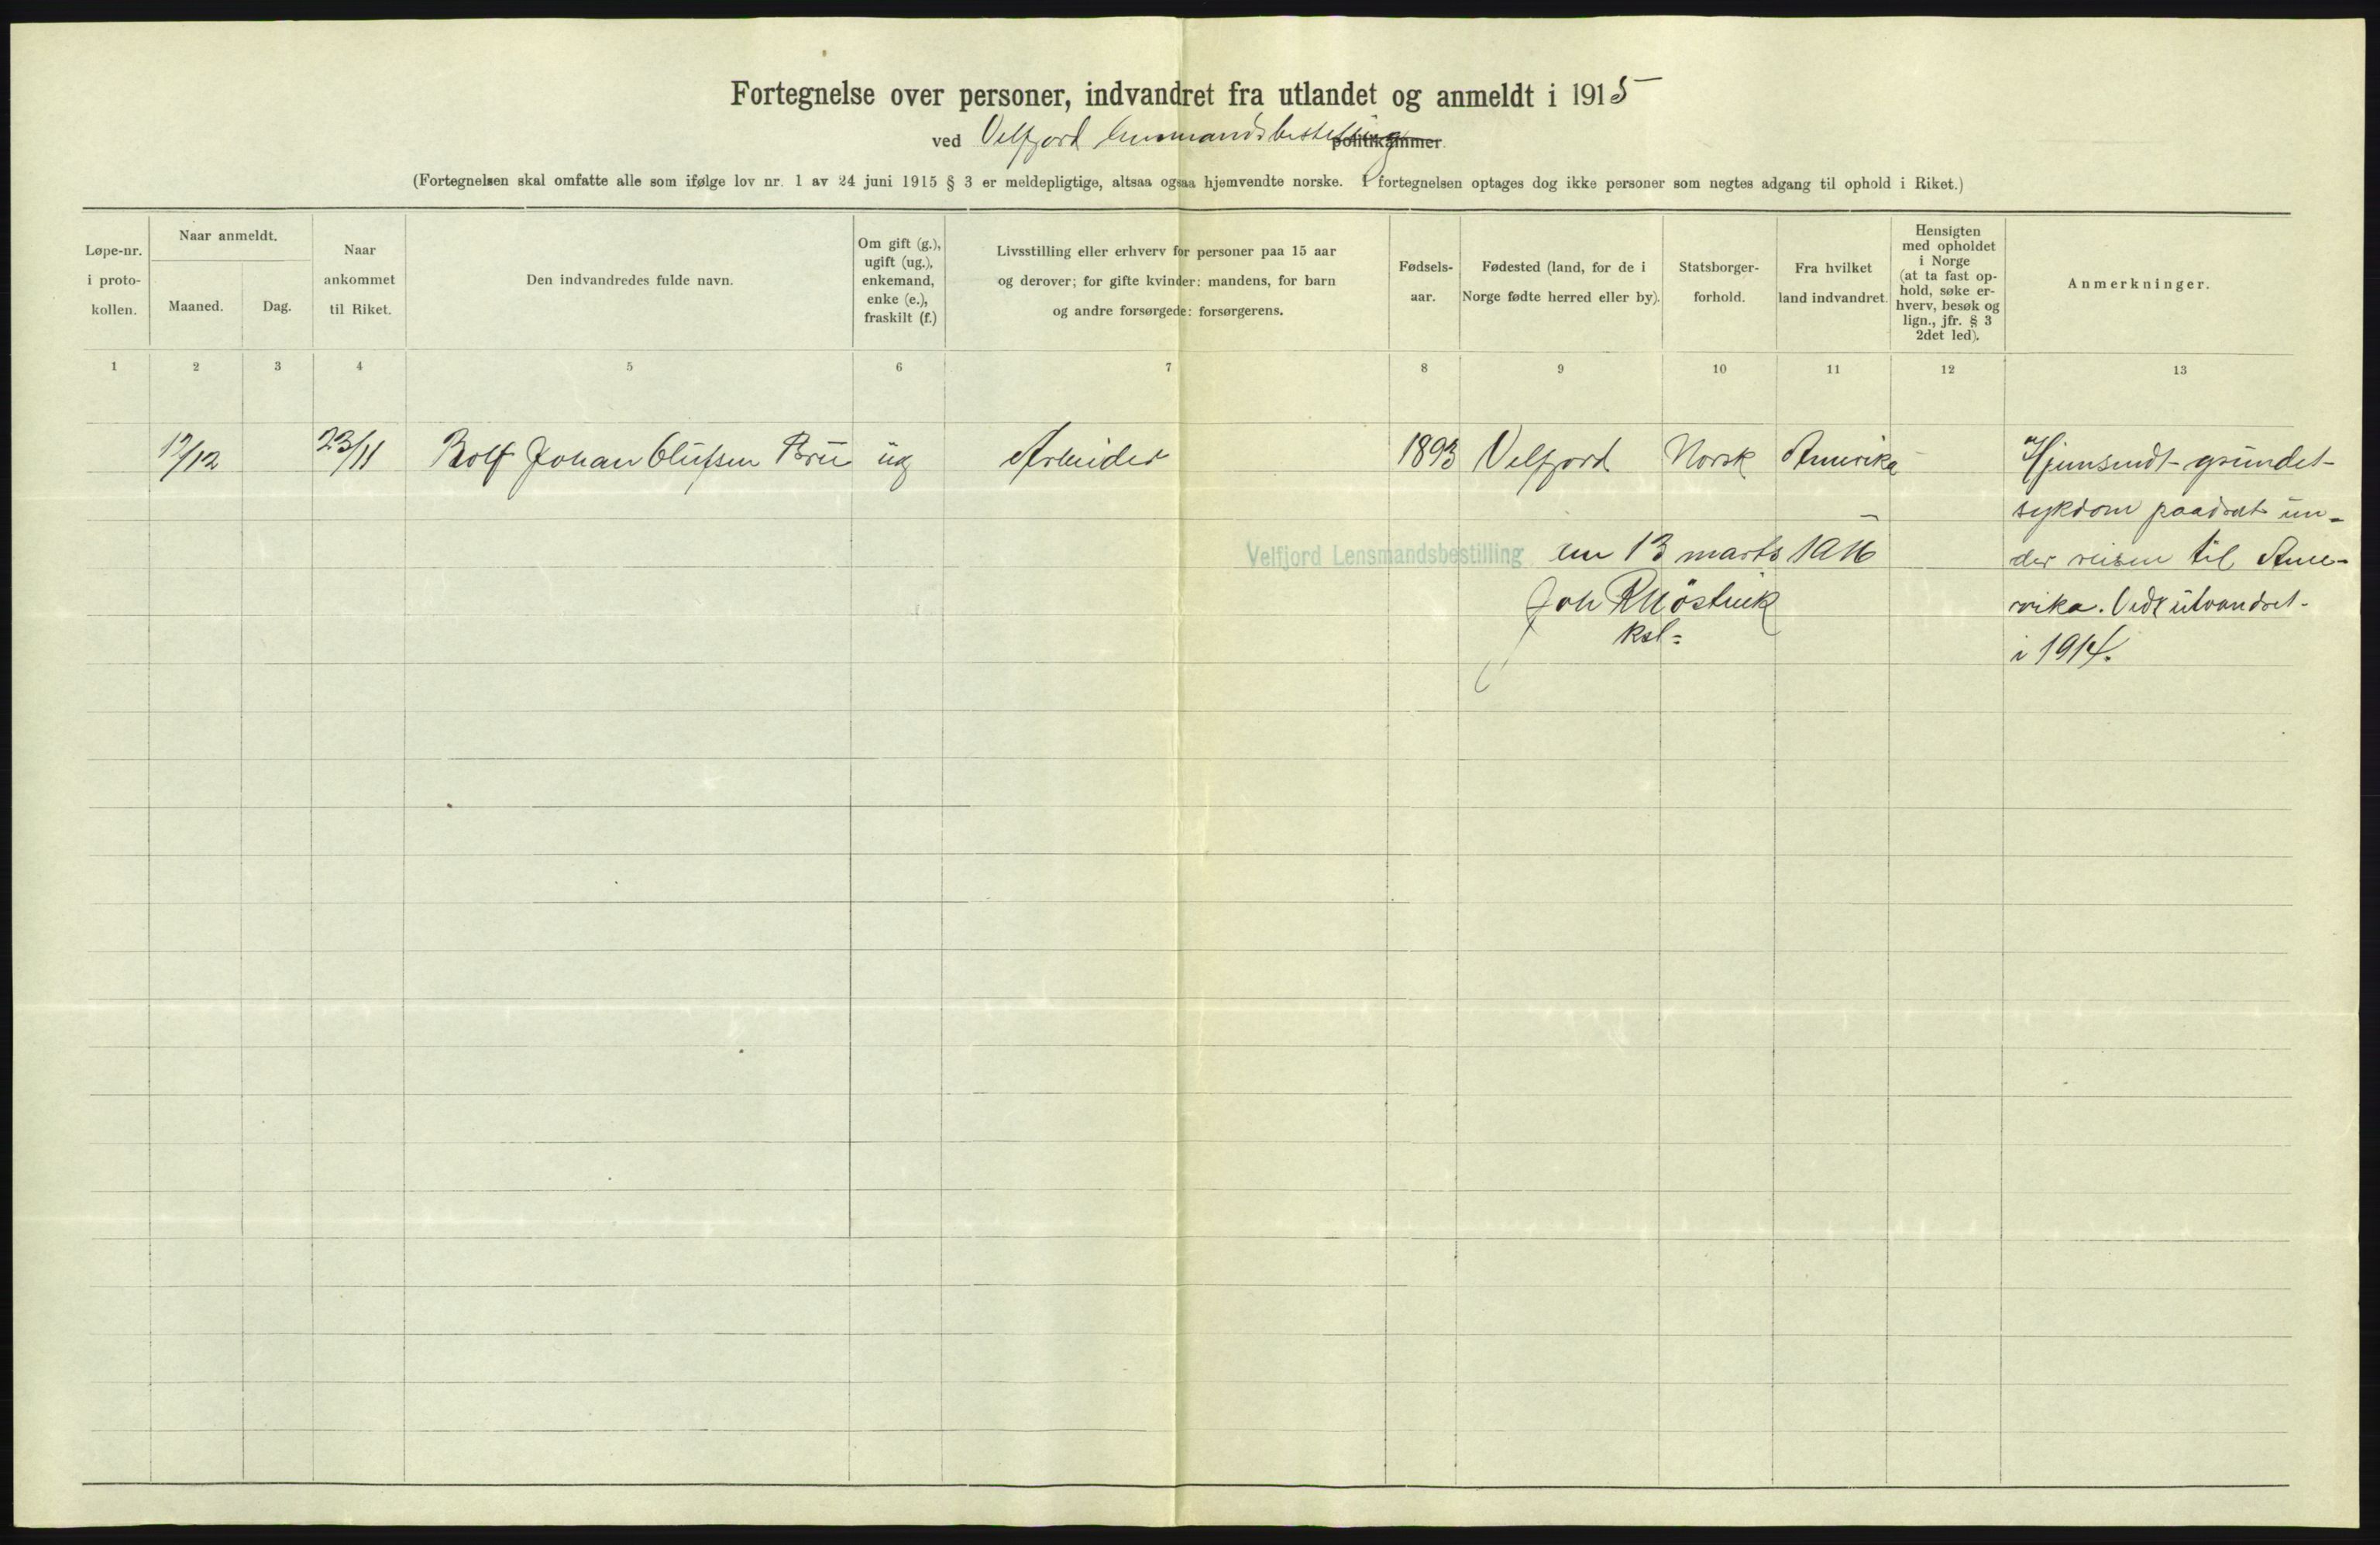 Fortegnelse over personer, indvandret fra utlandet og anmeldt i 1915
ved Velfjord lensmandsbestilling politikammer.
(Fortegnelsen skal omfatte alle som ifølge lov nr. 1 av 24 juni 1915 § 3 er meldepligtige, altsaa ogsaa hjemvendte norske. I fortegnelsen optages dog ikke personer som negtes adgang til ophold i Riket.)
Løpe-nr.
i proto-
kollen.
Naar anmeldt.
Maaned.
Dag.
Naar
ankommet
til Riket.
Den indvandredes fulde navn.
Om gift (g.),
ugift (ug.),
enkemand,
enke (e.),
fraskilt (f.)
Livsstilling eller erhverv for personer paa 15 aar
og derover; for gifte kvinder: mandens, for barn
og andre forsørgede: forsørgerens.
Fødsels-
aar.
Fødested (land, for de i
Norge fødte herred eller by).
Statsborger-
forhold.
Fra hvilket
land indvandret.
Hensigten
med opholdet
i Norge
(at ta fast op-
hold, søke er-
hverv, besøk og
lign., jfr. § 3
2det led).
Anmerkninger.
1 2 3 4 5 6 7 8 9 10 11 12 13
12/12 23/11 Rolf Johan Olufsen Bru ug Arbeider 1893 Velfjord Norsk Amerika Hjemsendt grundet
sykdom paadrat un-
der reisen til Ame-
rika. Vedk utvandret
i 1914.
Velfjord Lensmandsbestilling den 13 marts 1916
Joh
kst=